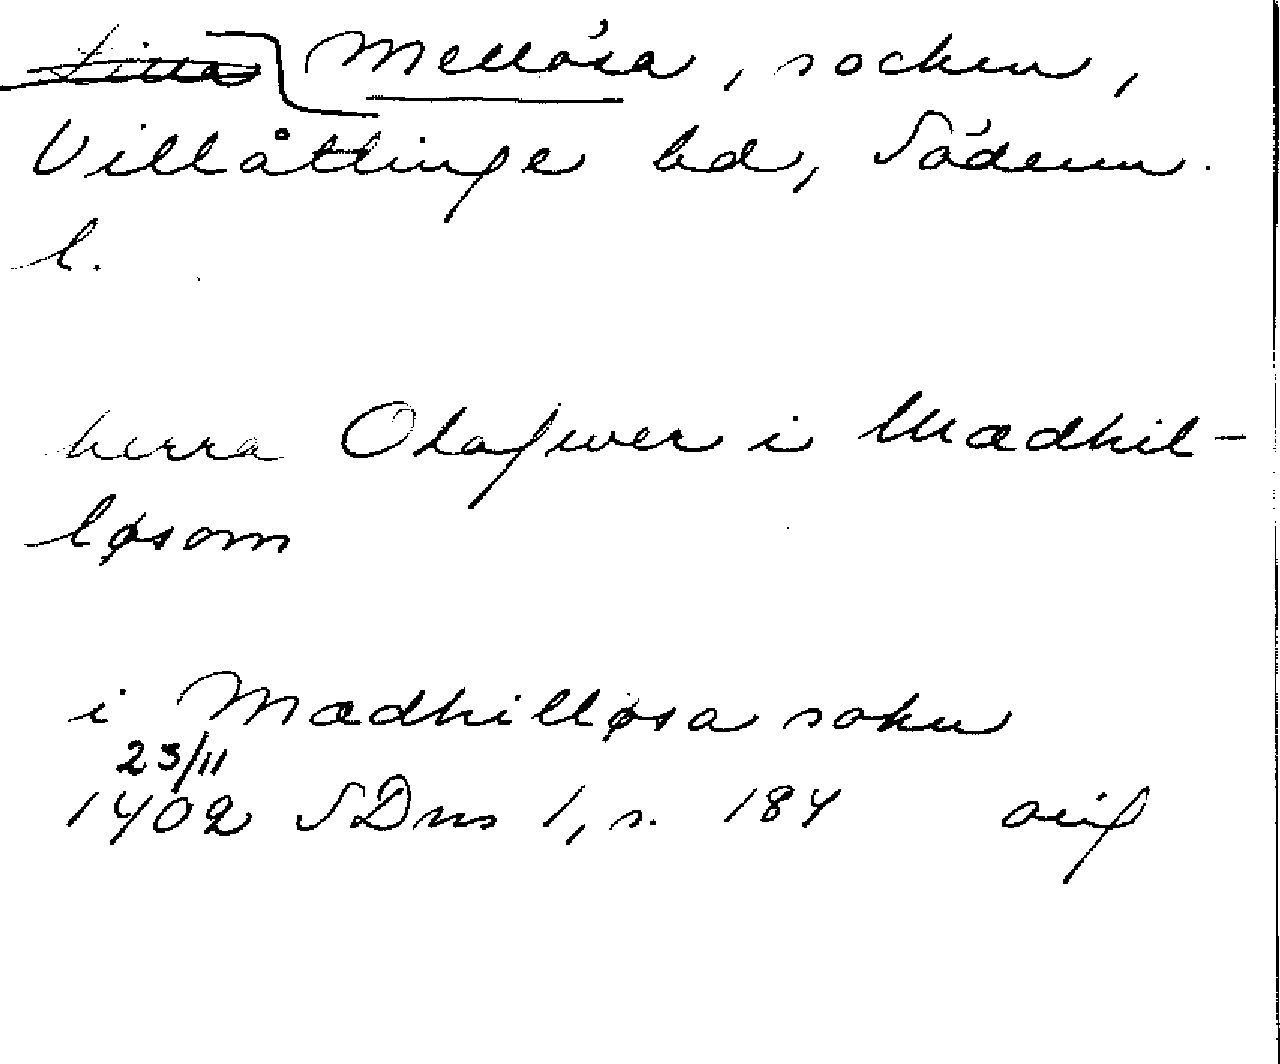 Mellösa, socken,
Villåttinge hd, Söderm.
l.
herra Olafwer i Mædhil-
løsom
i Mædhilløsa sokn
23/11
1402 SDns 1, s. 184 orig